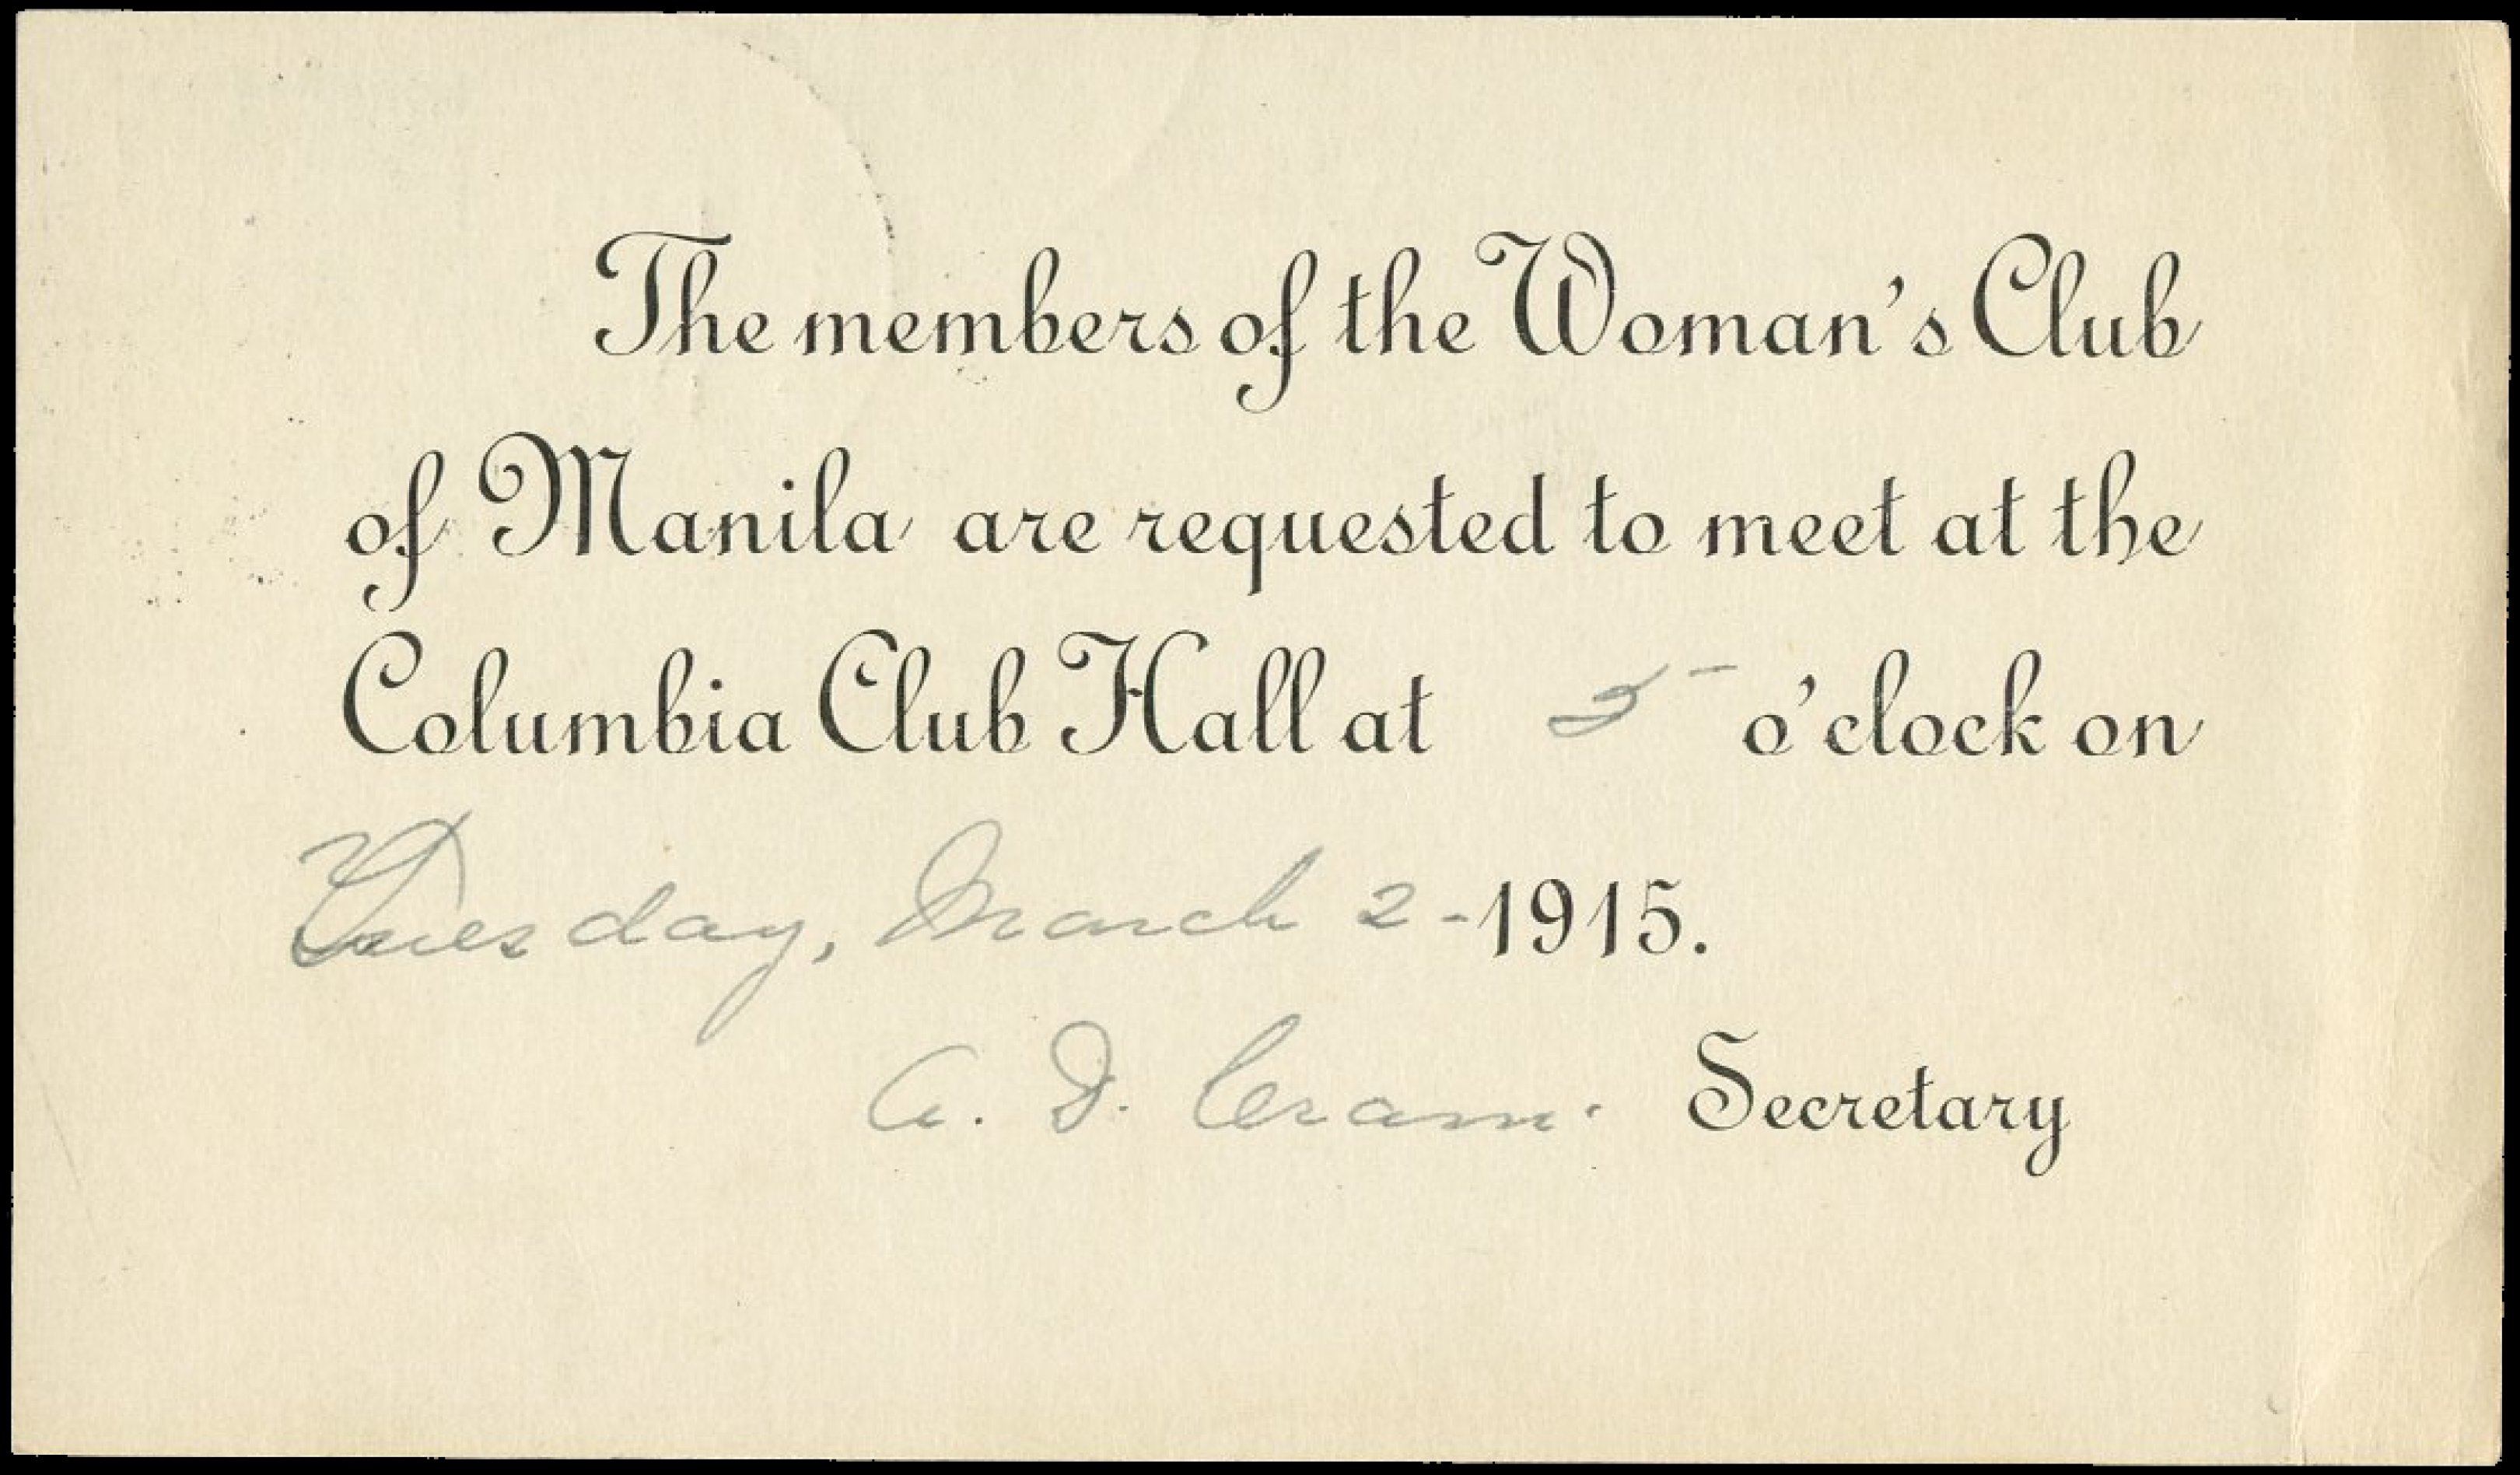 The members of the Woman's Club
of Manila are requested to meet at the
Columbia Club Hall at 5 o'clock on
Tuesday, March 2-1915.
A. D. Cram. Secretary